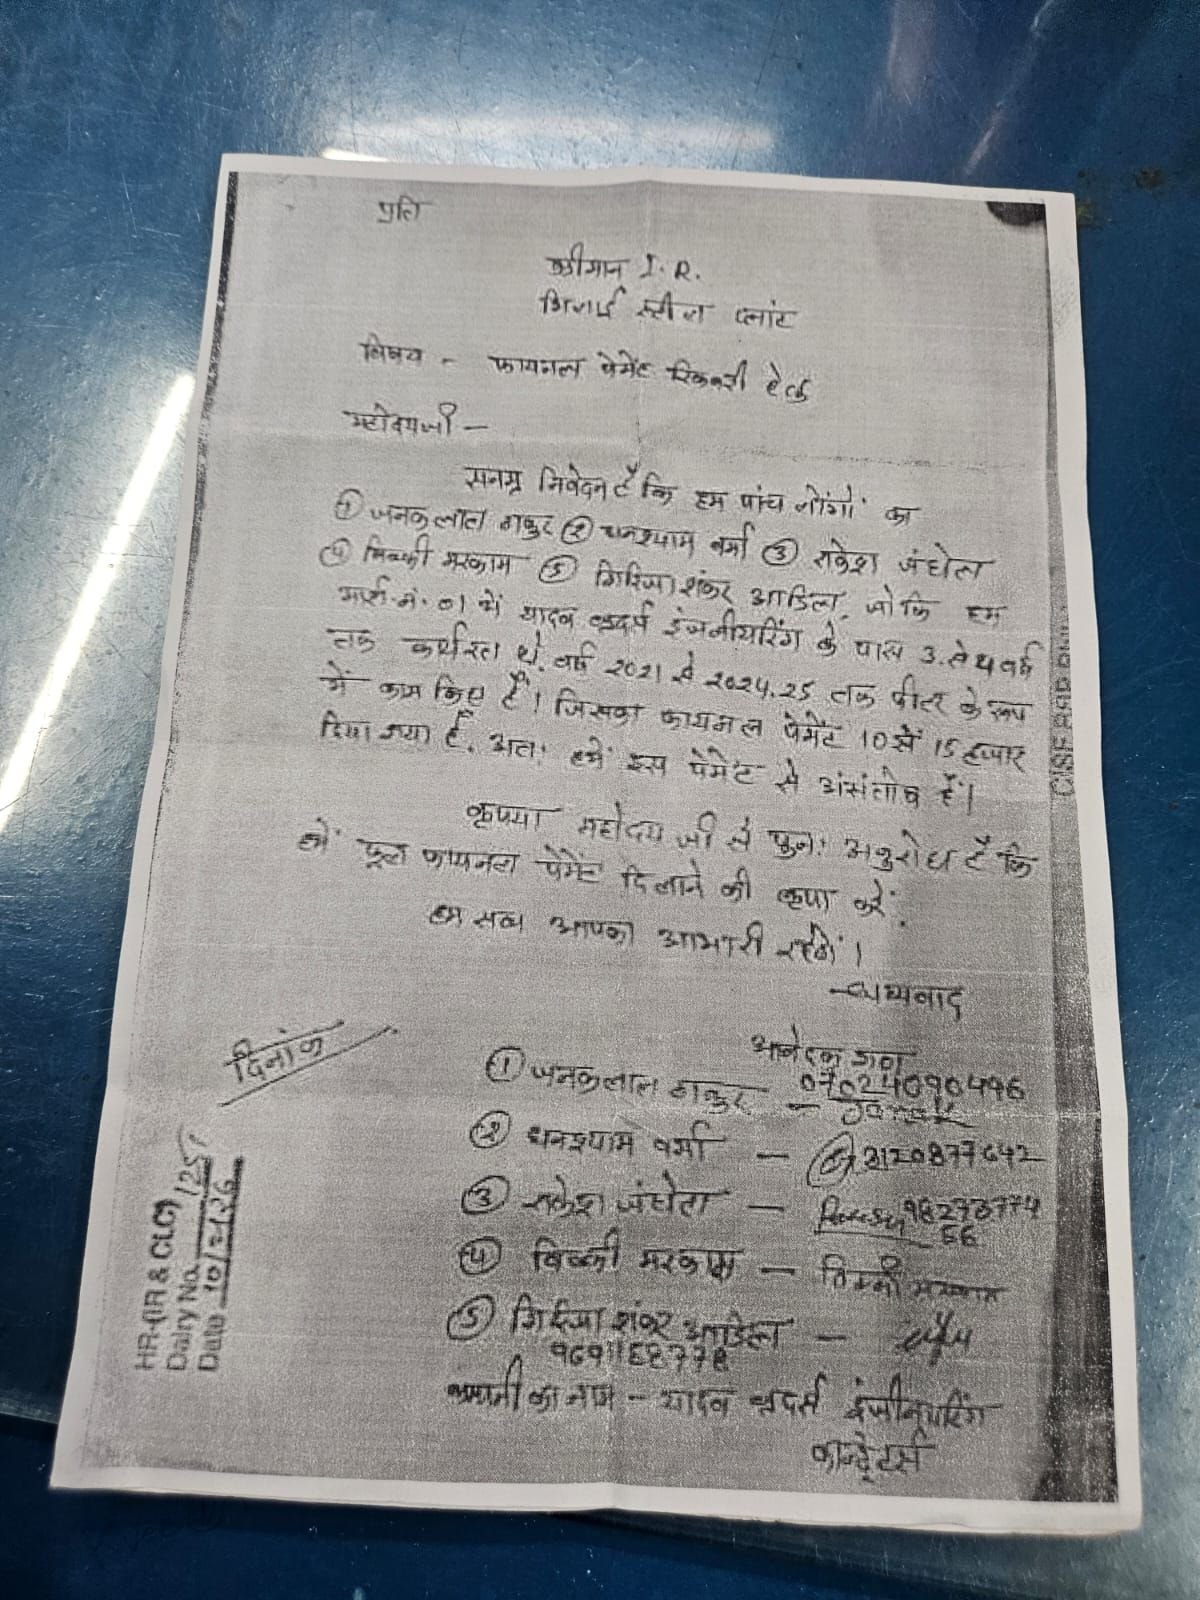 प्रति
श्रीमान I. R.
भिलाई स्टील प्लांट
विषय - फायनल पेमेंट रिकवरी हेतु
महोदयजी -
सनम्र निवेदन है कि हम पांच लोंगों का
① जनकलाल ठाकुर ② घनश्याम वर्मा ③ राकेश जंघेल
④ विक्की मरकाम ⑤ गिरिजाशंकर आडिल, जो कि हम
नं. 01 में यादव ब्रदर्स इंजनीयरिंग के पास 3. से 4 वर्ष
तक कार्यरत थे. वर्ष 2021 से 2024.25 तक फीटर के रूप
में काम किए हैं। जिसका फायनल पेमेंट 10 से 15 हजार
दिया गया है. अतः हमें इस पेमेंट से असंतोष हैं।
कृपया महोदय जी से पुनः अनुरोध है कि
हमें पूरा फायनल पेमेंट दिलाने की कृपा करें.
हम सब आपका आभारी रहेंगे।
धन्यवाद
दिनांक
आवेदक गण
① जनकलाल ठाकुर - 07024090496
Janak
② घनश्याम वर्मा - 3120877642
③ राकेश जंघेल - Rakesh 98273774
56
④ विक्की मरकाम - विक्की मरकाम
⑤ गिरिजा शंकर आडिल -
9691168778
कम्पनी का नाम - यादव ब्रदर्स इंजीनियरिंग
कान्ट्रेटर्स
HR-(IR & CLC)
Dairy No. 125
Date 10/2/26